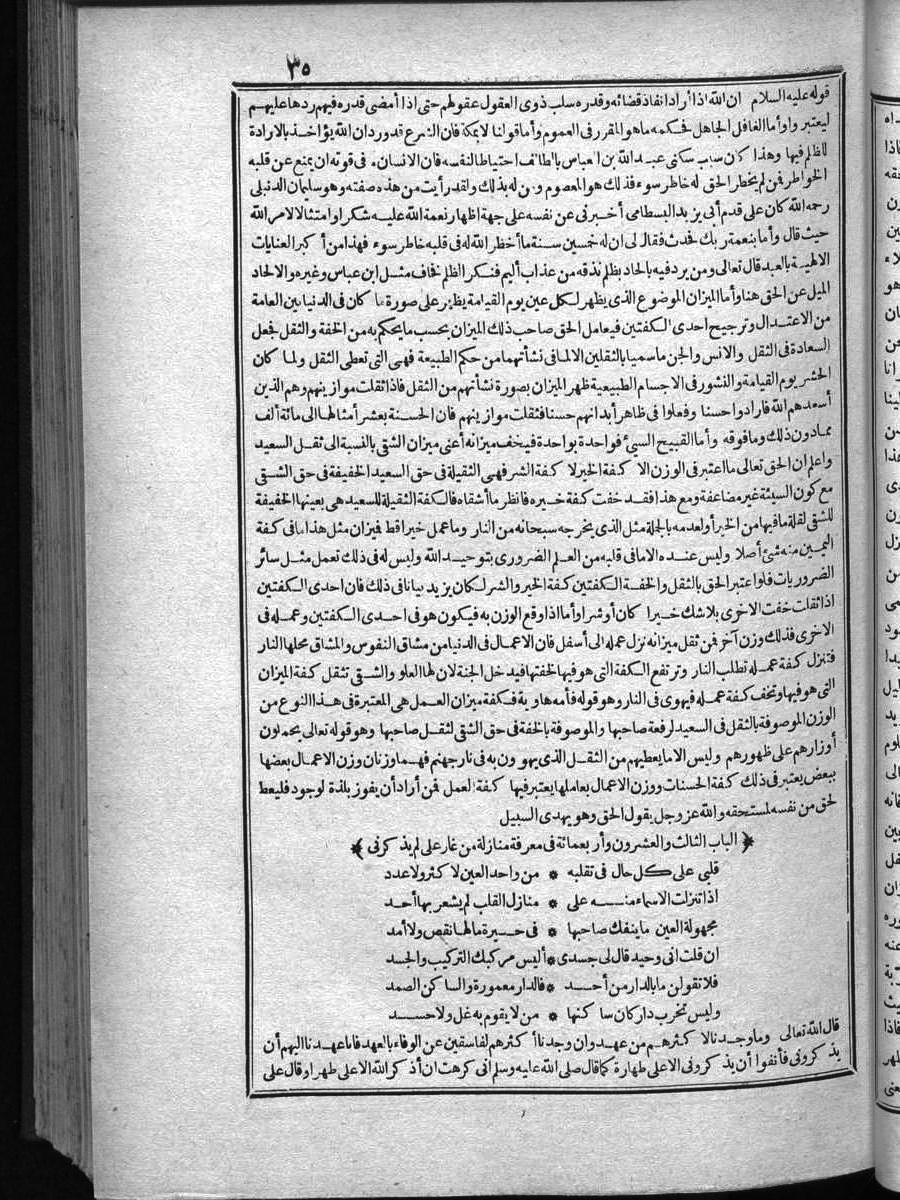 ٣٥
قوله عليه السلام ان الله اذا أراد انفاذ قضائه وقدره سلب ذوى العقول عقولهم حتى اذا أمضى قدره فيهم ردها عليهم
ليعتبروا وأما الغافل الجاهل فحكمه ماهو المقرر فى العموم وأما قولنا لا بمكة فان الشرع قدورد ان الله يؤاخذ بالارادة
للظلم فيها وهذا كان سبب سكنى عبد الله بن العباس بالطائف احتياطا لنفسه فان الانسان فى قوته ان يمنع عن قلبه
الخواطر فمن لم يخطر الحق له خاطر سوء فذلك هو المعصوم ومن له بذلك ولقد رأيت من هذه صفته وهو سليمان الدنبلى
رحمه الله كان على قدم أبى يزيد البسطامى أخبرنى عن نفسه على جهة اظهار نعمة الله عليه شكرا وامتثالا لامر الله
حيث قال وأما بنعمة ربك فحدث فقال لى ان له خمسين سنة ما أخطر الله له فى قلبه خاطر سوء فهذا من أكبر العنايات
الالهية بالعبد قال تعالى ومن يرد فيه بالحاد بظلم نذقه من عذاب أليم فنكر الظلم فخاف مثل ابن عباس وغيره والالحاد
الميل عن الحق هنا وأما الميزان الموضوع الذى يظهر لكل عين يوم القيامة يظهر على صورة ما كان فى الدنيا بين العامة
من الاعتدال وترجيح احدى الكفتين فيعامل الحق صاحب ذلك الميزان بحسب ما يحكم به من الخفة والثقل فجعل
السعادة فى الثقل والانس والجن ما سميا بالثقلين الالما فى نشأتهما من حكم الطبيعة فهى التى تعطى الثقل ولما كان
الحشر يوم القيامة والنشور فى الاجسام الطبيعية ظهر الميزان بصورة نشأتهم من الثقل فاذا ثقلت موازينهم وهم الذين
أسعدهم الله فارادوا حسنا وفعلوا فى ظاهر أبدانهم حسنا فثقلت موازينهم فان الحسنة بعشر أمثالها الى مائة ألف
ممادون ذلك وما فوقه وأما القبيح السيئ فواحدة بواحدة فيخف ميزانه أعنى ميزان الشقى بالنسبة الى ثقل السعيد
واعلم ان الحق تعالى ما اعتبر فى الوزن الا كفة الخير لا كفة الشر فهى الثقيلة فى حق السعيد الخفيفة فى حق الشقى
مع كون السيئة غير مضاعفة ومع هذا فقد خفت كفة خيره فانظر ما أشقاه فالكفة الثقيلة للسعيد هى بعينها الخفيفة
للشقى لقلة ما فيها من الخير أو لعدمه بالجملة مثل الذى يخرجه سبحانه من النار وما عمل خيرا قط فميزان مثل هذا ما فى كفة
اليمين منه شئ أصلا وليس عنده الا ما فى قلبه من العلم الضرورى بتوحيد الله وليس له فى ذلك تعمل مثل سائر
الضروريات فلو اعتبر الحق بالثقل والخفة الكفتين كفة الخير والشر لكان يزيد بيانا فى ذلك فان احدى الكفتين
اذا ثقلت خفت الاخرى بلاشك خيرا كان أو شرا وأما اذا وقع الوزن به فيكون هو فى احدى الكفتين وعمله فى
الاخرى فذلك وزن آخر فمن ثقل ميزانه نزل عمله الى أسفل فان الاعمال فى الدنيا من مشاق النفوس والمشاق محلها النار
فتنزل كفة عمله تطلب النار وترتفع الكفة التى هو فيها لخفتها فيدخل الجنة لان لها العلو والشقى تثقل كفة الميزان
التى هو فيها وتخف كفة عمله فيهوى فى النار وهو قوله فأمه هاوية فكفة ميزان العمل هى المعتبرة فى هذا النوع من
الوزن الموصوفة بالثقل فى السعيد لرفعة صاحبها والموصوفة بالخفة فى حق الشقى لثقل صاحبها وهو قوله تعالى يحملون
أوزارهم على ظهورهم وليس الا ما يعطيهم من الثقل الذى يهوون به فى نار جهنم فهما وزنان وزن الاعمال بعضها
ببعض يعتبر فى ذلك كفة الحسنات ووزن الاعمال بعاملها يعتبر فيها كفة العمل فمن أراد أن يفوز بلذة لوجود فليعط
لحق من نفسه لمستحقه والله عز وجل يقول الحق وهو يهدى السبيل
﴿ الباب الثالث والعشرون وأربعمائة فى معرفة منازلة من غار على لم يذكرنى ﴾
قلبى على كل حال فى تقلبه * من واحد العين لا كثر ولا عدد
اذا تنزلت الاسماء منه على * منازل القلب لم يشعر بها أحد
مجهولة العين ما ينفك صاحبها * فى حيرة مالها نقص ولا أمد
ان قلت انى وحيد قال لى جسدى * أليس مركبك التركيب والجسد
فلا تقولن ما بالدار من أحد * فالدار معمورة والساكن الصمد
وليس تخرب دار كان ساكنها * من لا يقوم به غل ولا حسد
قال الله تعالى وما وجدنا لا كثرهم من عهد وان وجدنا أكثرهم لفاسقين عن الوفاء بالعهد فاناعهدنا اليهم أن
يذكرونى فأنفوا أن يذكرونى الا على طهارة كما قال صلى الله عليه وسلم انى كرهت ان أذكر الله الا على طهر أو قال على